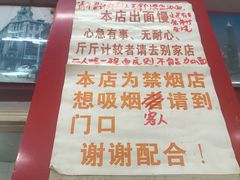 本店出面慢
心急有事、无耐心、
斤斤计较者请去别家店
二人吃一碗面
本店为禁烟店
想吸烟客人请到
门口
谢谢配合！